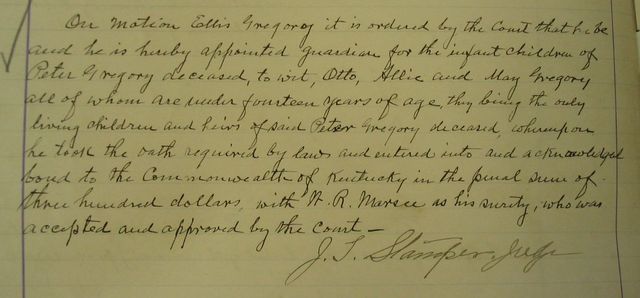 On Motion Ellis Gregory it is ordered by the Court that he be
and he is hereby appointed guardian for the infant children of
Peter Gregory deceased, to wit, Otto, Allie and May Gregory
all of whom are under fourteen years of age, they being the only
living children and heirs of said Peter Gregory deceased, whereupon
he took the oath required by law and entered into and acknowledged
bond to the Commonwealth of Kentucky in the penal sum of
three hundred dollars, with W. R. Marsee as his surity, who was
accepted and approved by the court —
J. T. Stamper, Judge